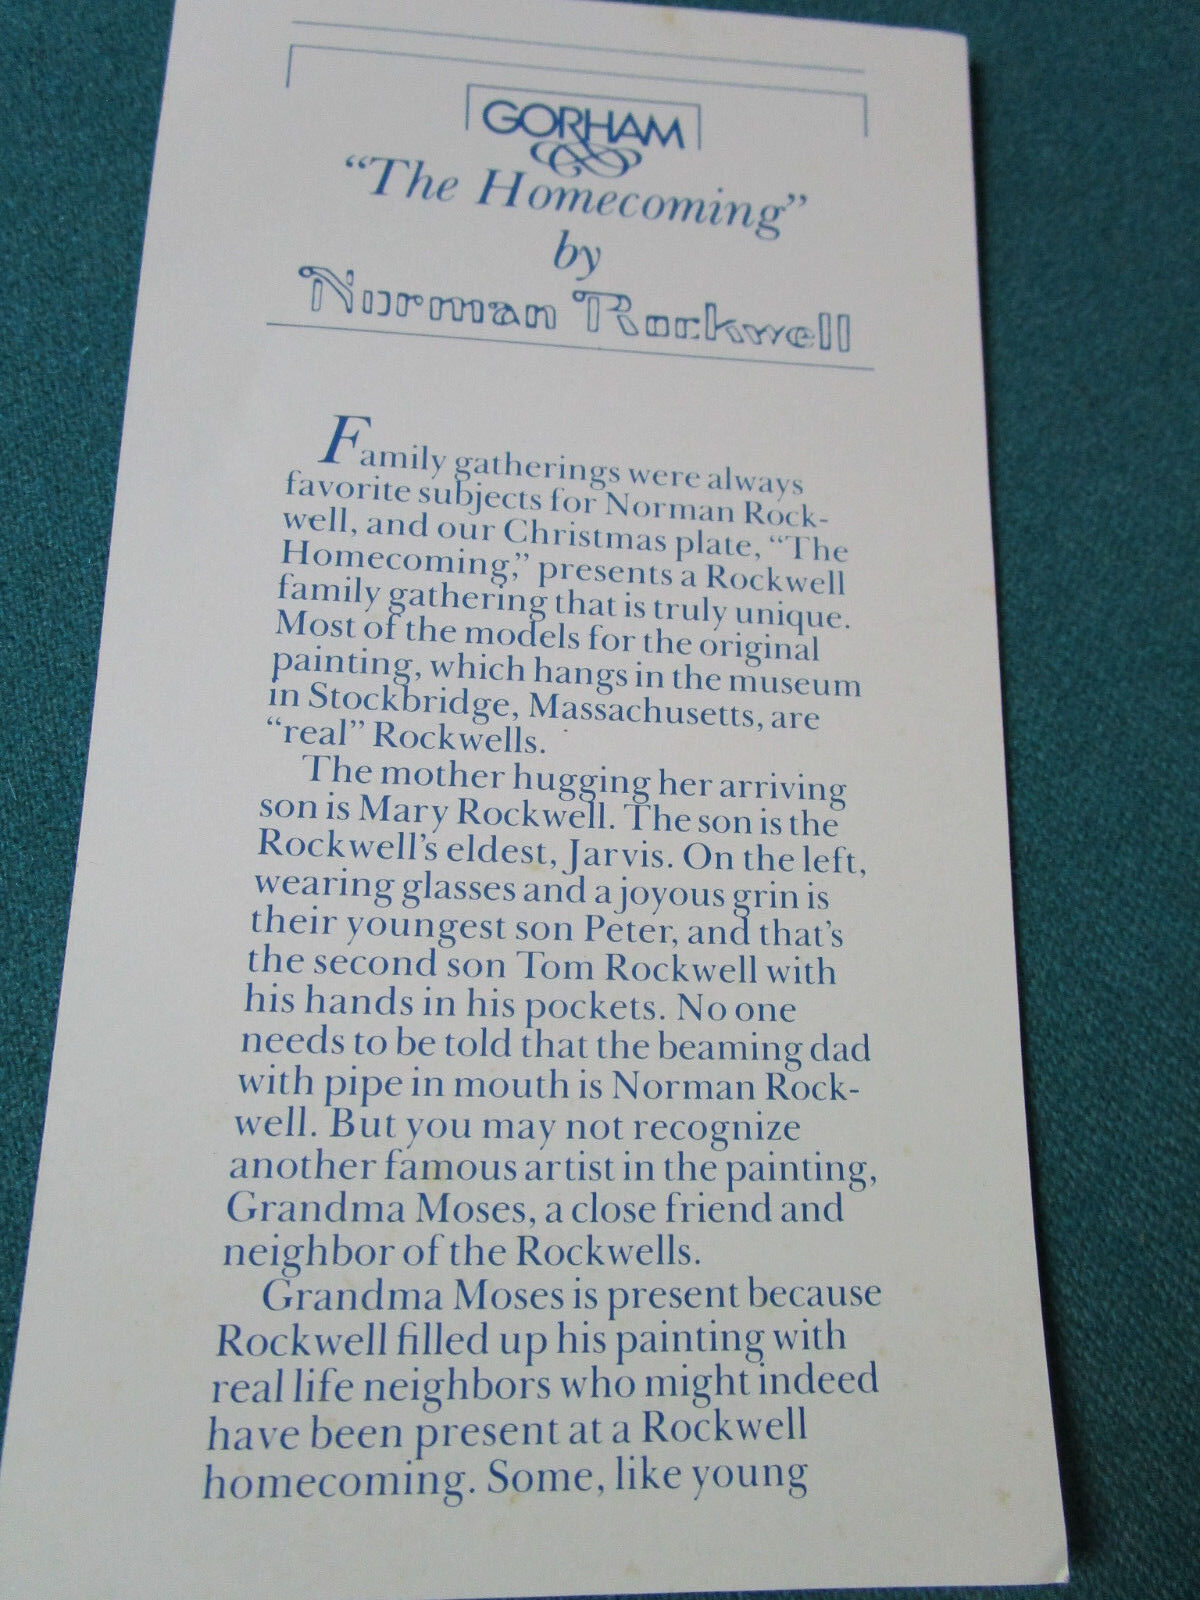 GORHAM
“The Homecoming”
by
Norman Rockwell
Family gatherings were always
favorite subjects for Norman Rock-
well, and our Christmas plate, “The
Homecoming,” presents a Rockwell
family gathering that is truly unique.
Most of the models for the original
painting, which hangs in the museum
in Stockbridge, Massachusetts, are
“real” Rockwells.
The mother hugging her arriving
son is Mary Rockwell. The son is the
Rockwell’s eldest, Jarvis. On the left,
wearing glasses and a joyous grin is
their youngest son Peter, and that’s
the second son Tom Rockwell with
his hands in his pockets. No one
needs to be told that the beaming dad
with pipe in mouth is Norman Rock-
well. But you may not recognize
another famous artist in the painting,
Grandma Moses, a close friend and
neighbor of the Rockwells.
Grandma Moses is present because
Rockwell filled up his painting with
real life neighbors who might indeed
have been present at a Rockwell
homecoming. Some, like young